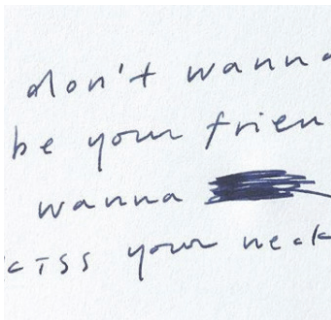 don't wanna
be your frien
wanna
kiss your neck